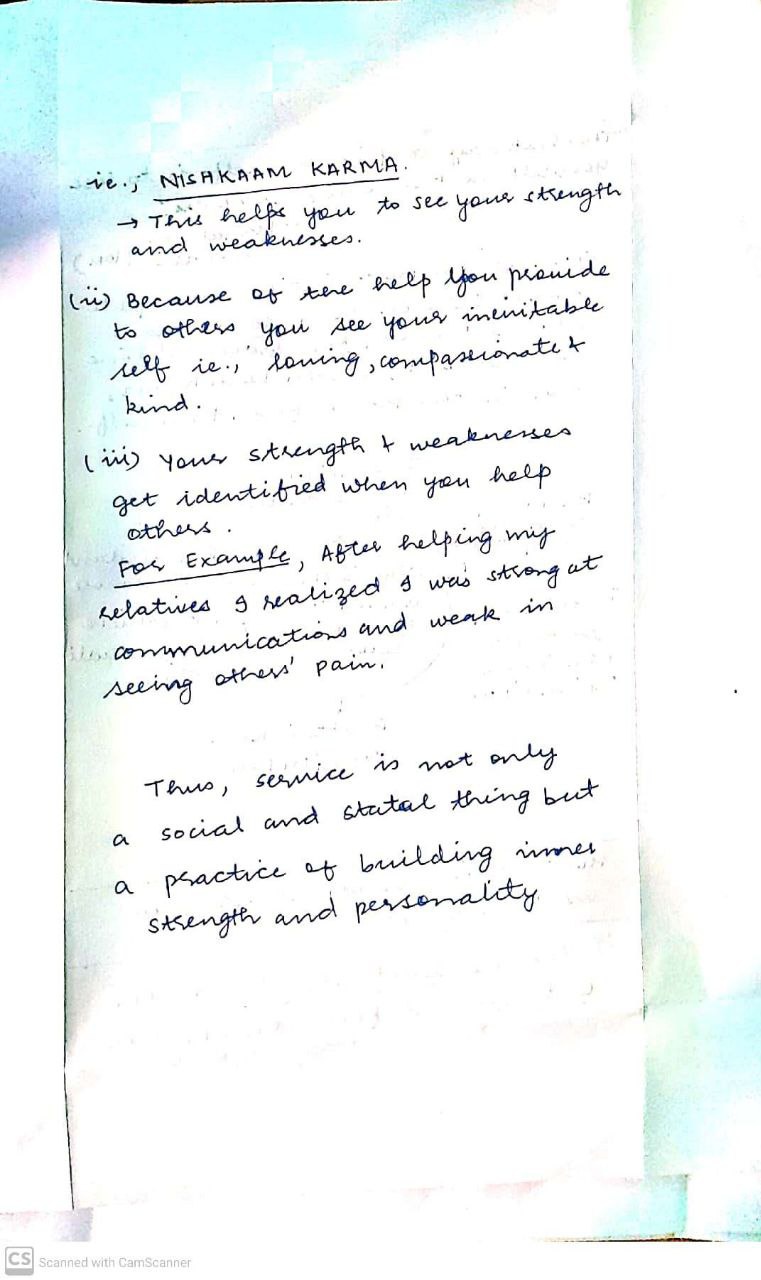 ie., NISHKAAM KARMA.
→ This helps you to see your strength
and weaknesses.
(ii) Because of the help you provide
to others you see your inevitable
self ie., loving, compassionate &
kind.
(iii) Your strength & weaknesses
get identified when you help
others.
For Example, After helping my
relatives I realized I was strong at
communications and weak in
seeing others' pain.
Thus, service is not only
a social and statal thing but
a practice of building inner
strength and personality
CS Scanned with CamScanner